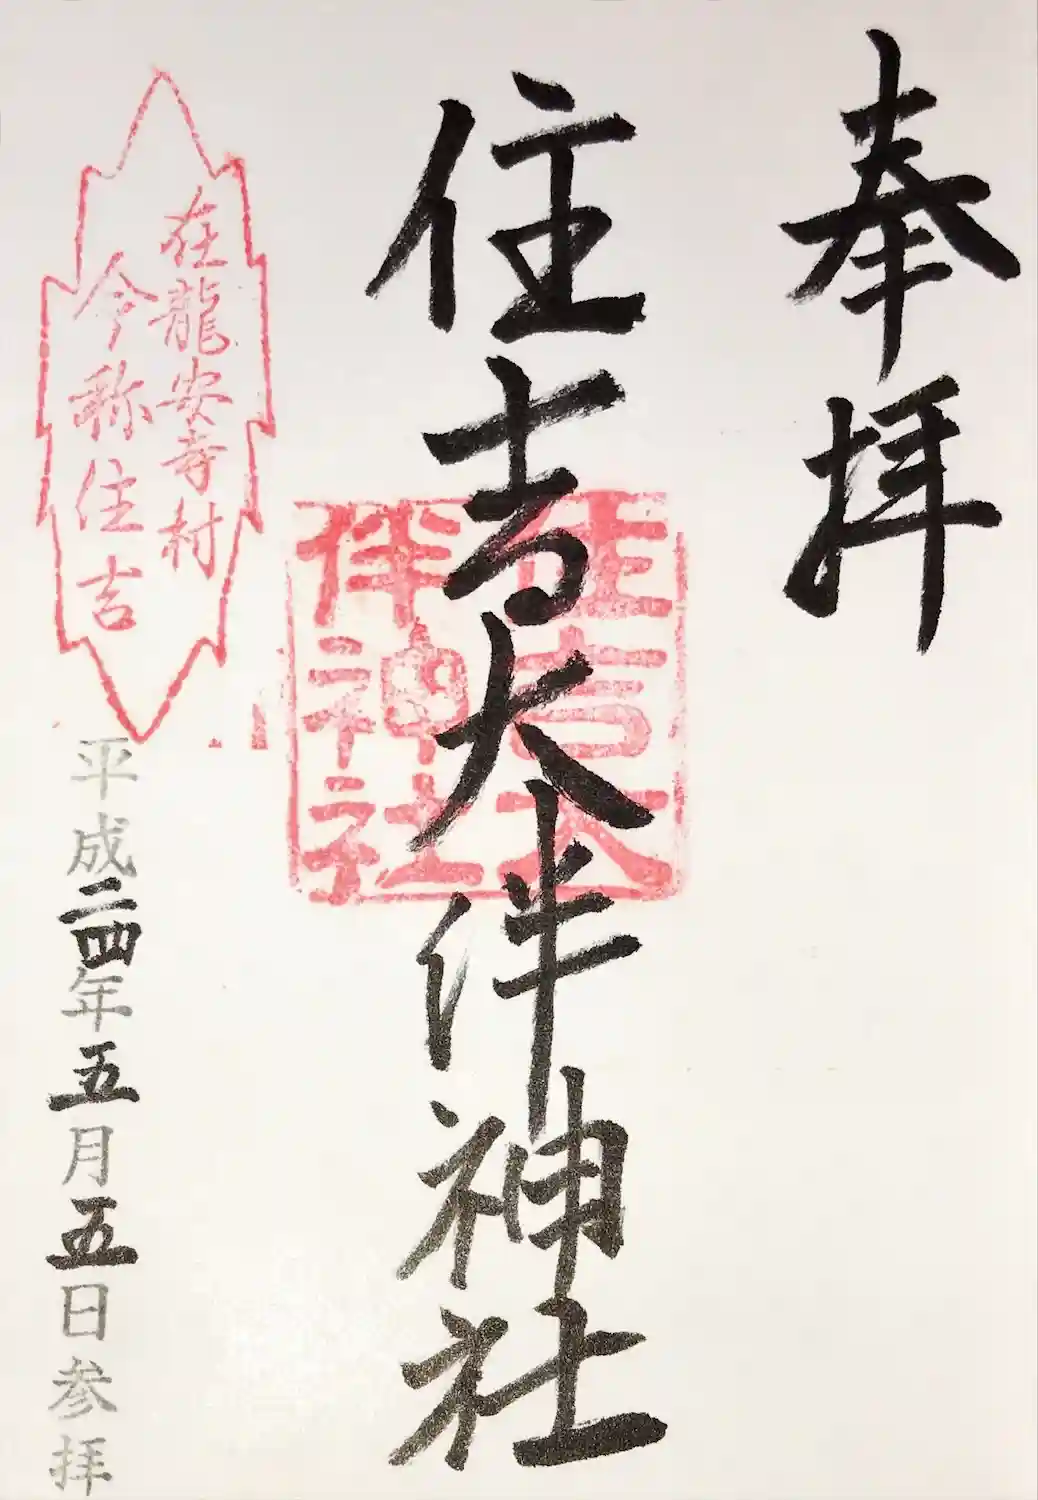 奉拝
住吉大伴神社
住吉大
伴神社
在龍安寺村
今称住吉
平成二四年五月五日参拝